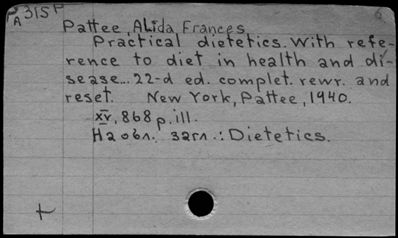 PA315P
6
Pattee, Alida, Frances.
Practical dietetics. With refe-
rence to diet in health and di-
sease... 22-d ed. complet. rewr. and
reset. New York, Pattee, 1940.
xv, 868 p. ill.
На обл. загл.: Dietetics.
+